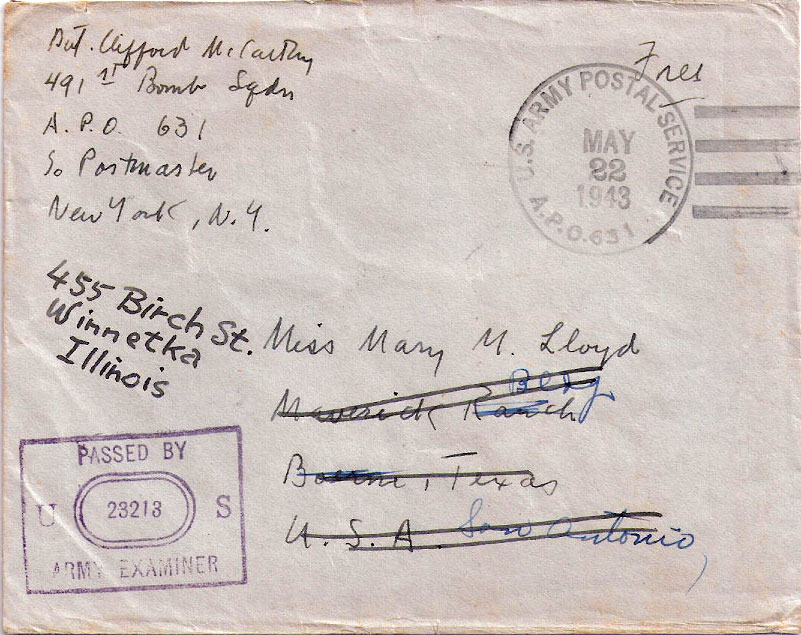 Pvt. Clifford McCarthy
491 st Bomb Sqdn
A.P.O. 631
℅ Postmaster
New York, N.Y.
Free
U.S. ARMY POSTAL SERVICE
MAY
22
1943
A.P.O. 631
455 Birch St.
Winnetka
Illinois
Miss Mary M. Lloyd
Maverick Ranch
Berg
Boerne, Texas
U.S.A. San Antonio,
PASSED BY
U 23213 S
ARMY EXAMINER